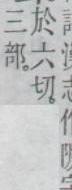 漢志作
於六切。
三部。